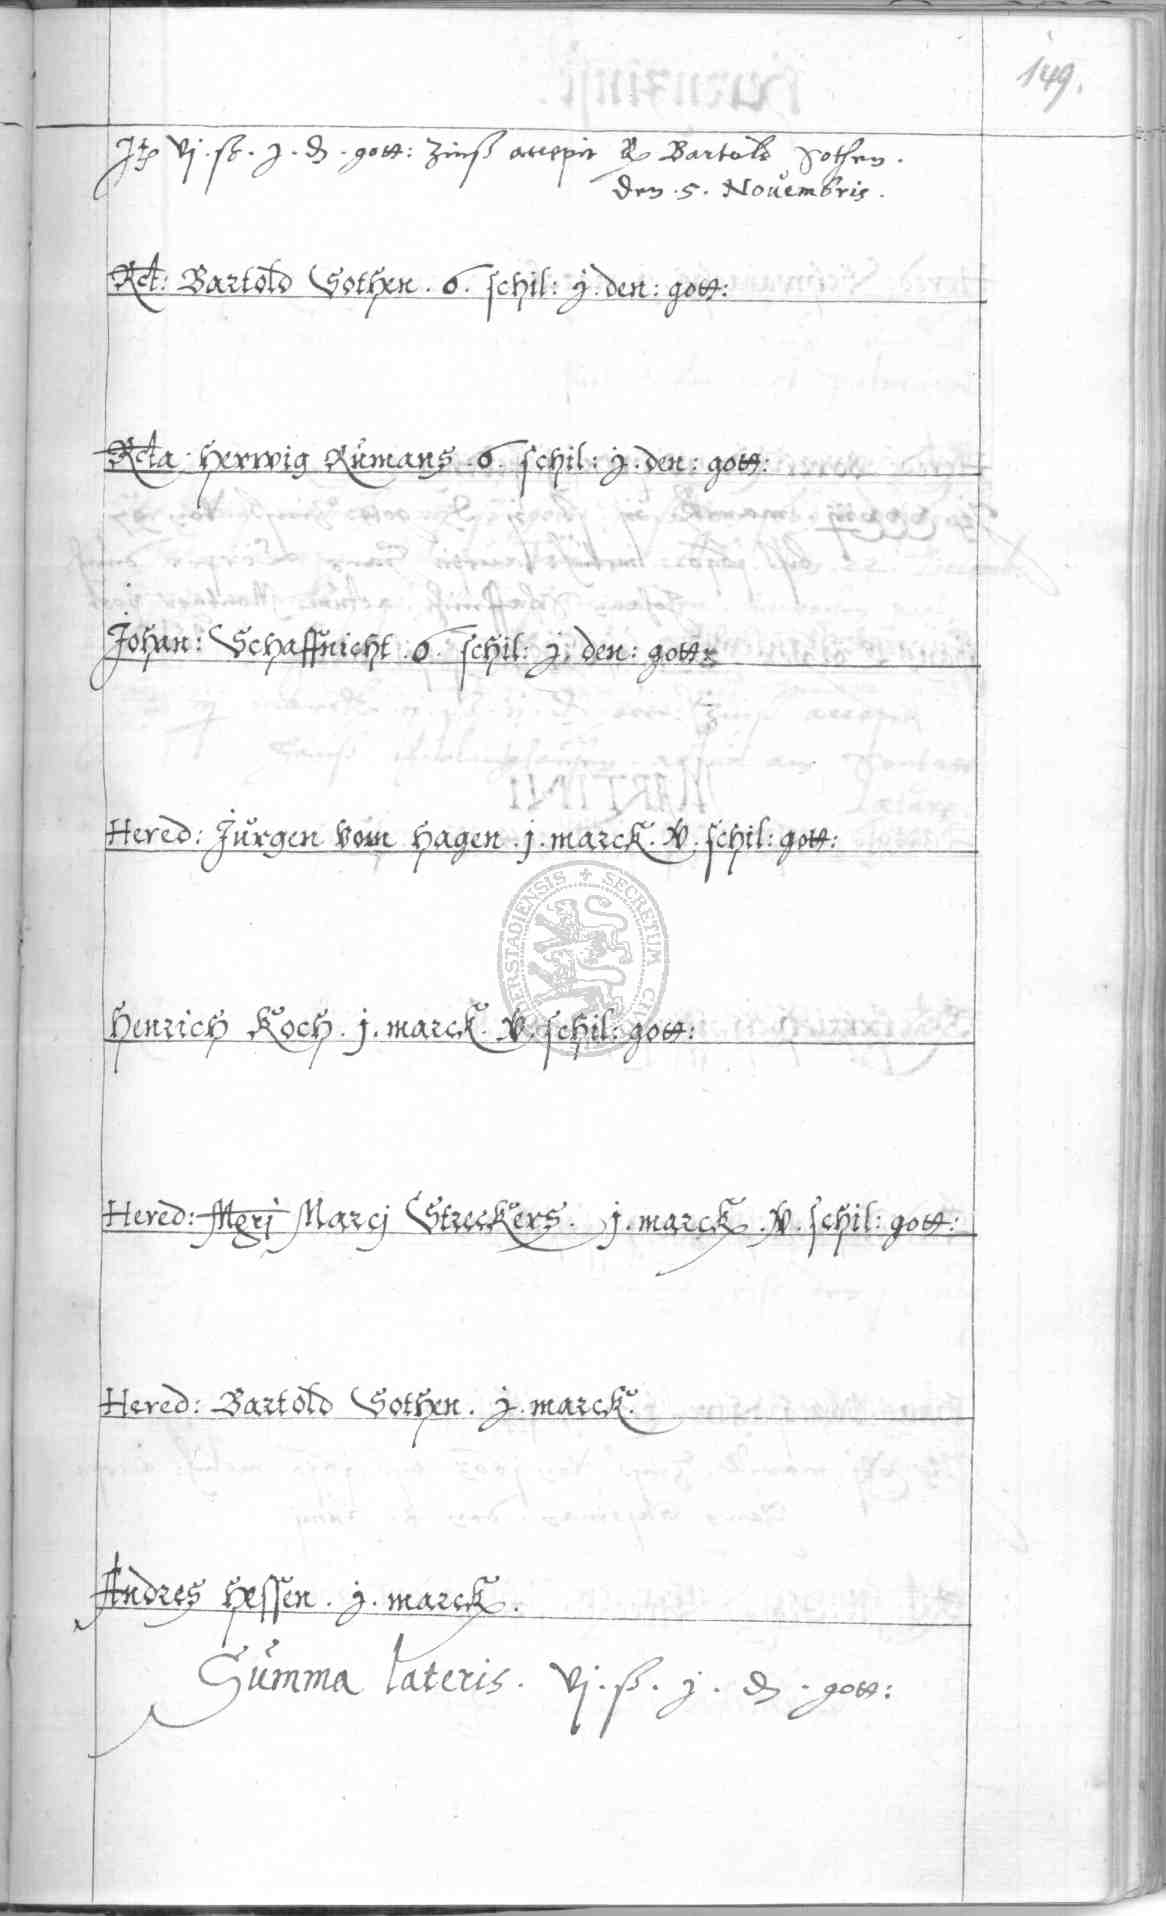 149.
Jtem vj. ß. j. d. gott: Zinß accepit R Bartold Sothen.
den. 5. Novembris.
Rct: Bartold Sothen. 6. schil: j. den: gott:
Rcta: Herwig Rümans. 6. schil: j. den: gott:
Johan: Schaffnicht. 6. schil: j. den: gott:
Hered: Jürgen vom Hagen. j. marck. v. schil: gott:
Henrich Koch. j. marck. v. schil: gott:
Hered: Mgrj Marcj Streckers. j. marck. v. schil: gott:
Hered: Bartold Sothen. j. marck.
Andres Hessen. j. marck.
Summa lateris. vj. ß. j. d. gott:
SECRETUM